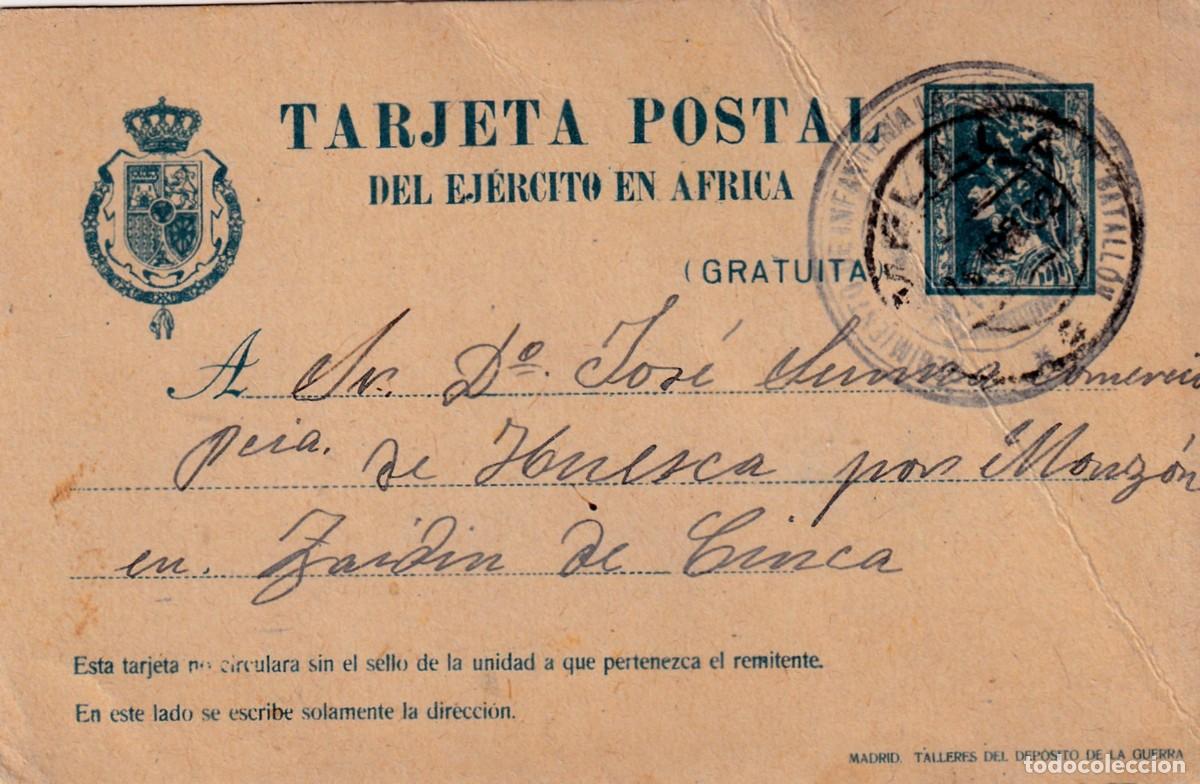 TARJETA POSTAL
DEL EJÉRCITO EN AFRICA
(GRATUITA)
BATALLÓN
DE INFANTERIA
MELILLA
A Sr. Dº. José Comercio
pcia. de Huesca por Monzón
en. Zaidin de Cinca
Esta tarjeta no circulara sin el sello de la unidad a que pertenezca el remitente.
En este lado se escribe solamente la dirección.
MADRID. TALLERES DEL DEPÓSITO DE LA GUERRA
todocoleccion